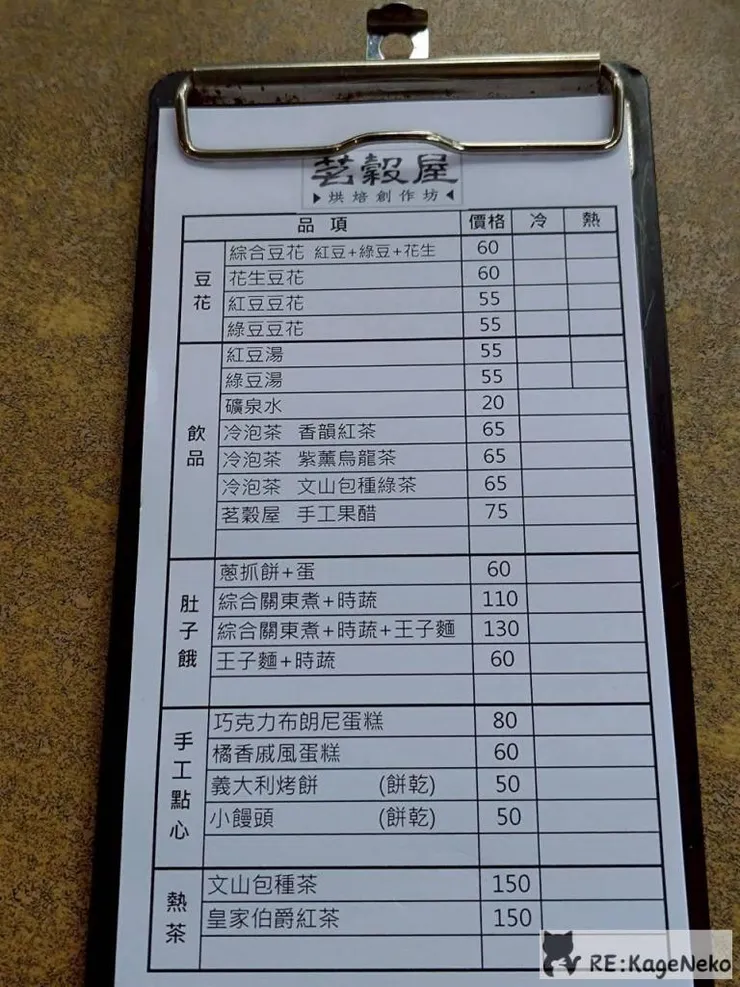 茗穀屋
▶烘焙創作坊◀
品項 價格 冷 熱
豆花
綜合豆花 紅豆+綠豆+花生 60
花生豆花 60
紅豆豆花 55
綠豆豆花 55
飲品
紅豆湯 55
綠豆湯 55
礦泉水 20
冷泡茶 香韻紅茶 65
冷泡茶 紫薰烏龍茶 65
冷泡茶 文山包種綠茶 65
茗穀屋 手工果醋 75
肚子餓
蔥抓餅+蛋 60
綜合關東煮+時蔬 110
綜合關東煮+時蔬+王子麵 130
王子麵+時蔬 60
手工點心
巧克力布朗尼蛋糕 80
橘香戚風蛋糕 60
義大利烤餅 (餅乾) 50
小饅頭 (餅乾) 50
熱茶
文山包種茶 150
皇家伯爵紅茶 150
RE:KageNeko